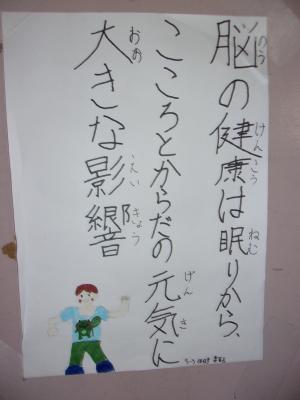 脳の健康は眠りから、
こころとからだの元気に
大きな影響
のう
けんこう
ねむ
げんき
おお
えいきょう